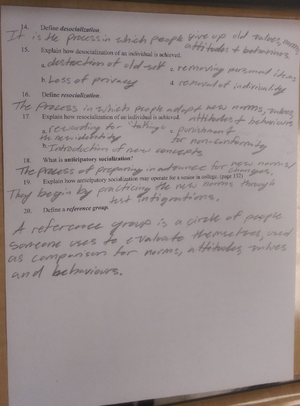 14. Define desocialization.
It is the process in which people give up old values, norms,
attitudes + behaviours.
15. Explain how desocialization of an individual is achieved.
a. destruction of old self c. removing personal items
b. Loss of privacy d. removal of individuality
16. Define resocialization.
The process in which people adopt new norms, values,
attitudes + behaviours
17. Explain how resocialization of an individual is achieved.
a. rewarding for taking c. punishment
on new identity for non-conformity
b. Introduction of new concepts
18. What is anticipatory socialization?
The process of preparing in advance for new norms/
changes.
19. Explain how anticipatory socialization may operate for a senior in college. (page 112)
They begin by practicing the new norms through
test
20. Define a reference group.
A reference group is a circle of people
someone uses to evaluate themselves, used
as comparison for norms, attitudes, values
and behaviours.